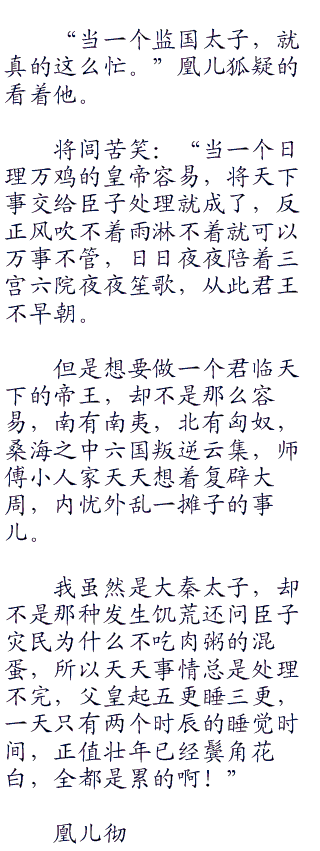 “当一个监国太子，就
真的这么忙。”凰儿狐疑的
看着他。
将闾苦笑：“当一个日
理万鸡的皇帝容易，将天下
事交给臣子处理就成了，反
正风吹不着雨淋不着就可以
万事不管，日日夜夜陪着三
宫六院夜夜笙歌，从此君王
不早朝。
但是想要做一个君临天
下的帝王，却不是那么容
易，南有南夷，北有匈奴，
桑海之中六国叛逆云集，师
傅小人家天天想着复辟大
周，内忧外乱一摊子的事
儿。
我虽然是大秦太子，却
不是那种发生饥荒还问臣子
灾民为什么不吃肉粥的混
蛋，所以天天事情总是处理
不完，父皇起五更睡三更，
一天只有两个时辰的睡觉时
间，正值壮年已经鬓角花
白，全都是累的啊！”
凰儿彻